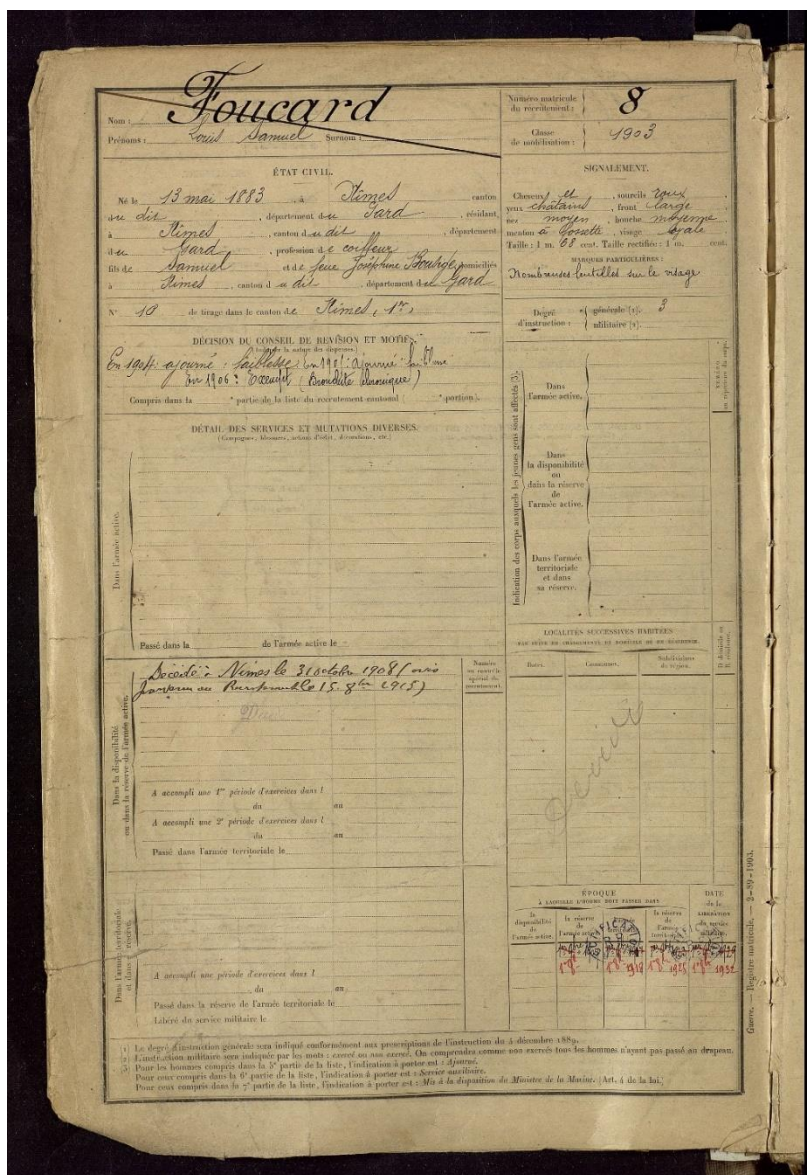 Nom : Foucard
Prénoms : Louis Samuel Surnom :
Numéro matricule du recrutement : 8
Classe de mobilisation : 1903
ÉTAT CIVIL.
Né le 13 mai 1883, à Nîmes canton
du dit, département du Gard, résidant
à Nîmes, canton du dit, département
du Gard, profession de coiffeur
fils de Samuel et de feue Joséphine domiciliés
à Nîmes canton du dit, département du Gard
N° 10 de tirage dans le canton de Nîmes, 1er,
SIGNALEMENT.
Cheveux et, sourcils roux,
yeux châtains, front large
nez moyen, bouche moyenne
menton à fossette, visage ovale
Taille : 1 m. 68 cent. Taille rectifiée : 1 m. cent.
MARQUES PARTICULIÈRES :
Nombreuses lentilles sur le visage
Degré d'instruction : générale (1). 3
militaire (2).
DÉCISION DU CONSEIL DE RÉVISION ET MOTIFS.
En 1904 : ajourné : faiblesse : En 1905 : ajourné faiblesse
En 1906 : Exempt (Bronchite chronique)
Compris dans la e partie de la liste du recrutement cantonal ( e portion).
DÉTAIL DES SERVICES ET MUTATIONS DIVERSES.
(Campagnes, blessures, actions d'éclat, décorations, etc.)
Dans l'armée active.
Passé dans la de l'armée active le
Indication des corps auxquels les jeunes gens sont affectés (3).
Dans
l'armée active.
Dans
la disponibilité
ou
dans la réserve
de
l'armée active.
Dans l'armée
territoriale
et dans
sa réserve.
NUMÉRO
au répertoire du corps.
Dans la disponibilité
ou dans la réserve de l'armée active.
Décédé à Nîmes le 31 octobre 1908 (avis
le 15 8bre 1915)
Numéro
au contrôle
spécial du
recrutement.
A accompli une 1re période d'exercices dans l
du au
A accompli une 2e période d'exercices dans l
du au
Passé dans l'armée territoriale le
LOCALITÉS SUCCESSIVES HABITÉES
PAR SUITE DE CHANGEMENT DE DOMICILE OU DE RÉSIDENCE.
Dates.
Communes.
Subdivisions
de région.
D domicile ou
R résidence.
Dans l'armée territoriale
et dans sa réserve.
A accompli une période d'exercices dans l
du au
Passé dans la réserve de l'armée territoriale le
Libéré du service militaire le
ÉPOQUE
À LAQUELLE L'HOMME DOIT PASSER DANS
DATE
de la
LIBÉRATION
du service
militaire.
la
disponibilité
de
l'armée active.
la réserve
de
l'armée active.
l'armée
territoriale.
la réserve
de
l'armée
territoriale.
1 8bre 1918 1 8bre 1925 1 8bre 1932
Guerre. — Registre matricule. — 2-89-1903.
1 Le degré d'instruction générale sera indiqué conformément aux prescriptions de l'instruction du 4 décembre 1889.
2 L'instruction militaire sera indiquée par les mots : exercé ou non exercé. On comprendra comme non exercés tous les hommes n'ayant pas passé au drapeau.
3 Pour les hommes compris dans la 5e partie de la liste, l'indication à porter est : Ajourné.
Pour ceux compris dans la 6e partie de la liste, l'indication à porter est : Service auxiliaire.
Pour ceux compris dans la 7e partie de la liste, l'indication à porter est : Mis à la disposition du Ministre de la Marine. (Art. 4 de la loi.)